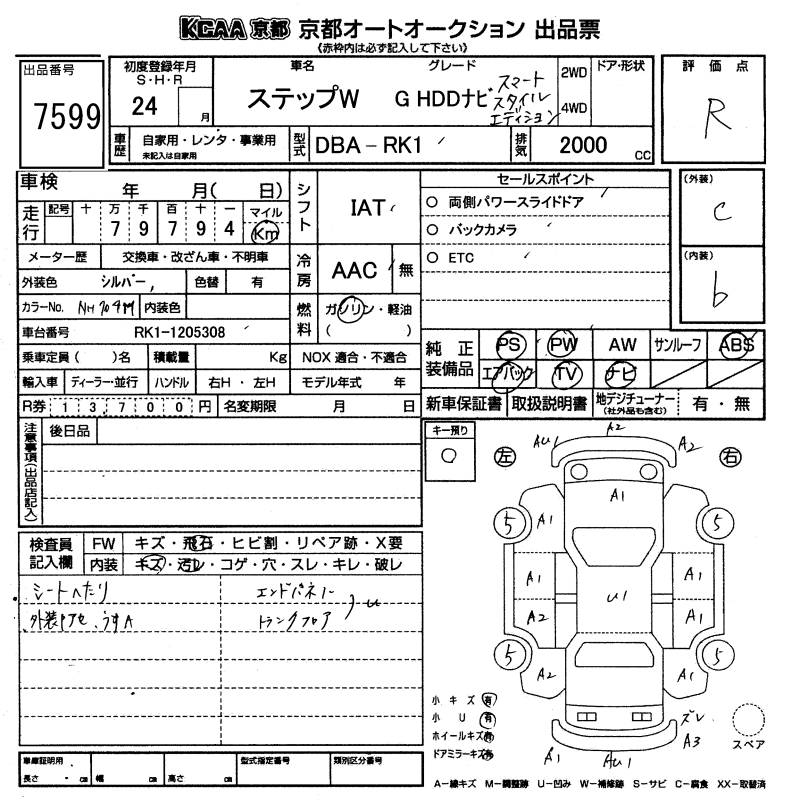 KCAA 京都 京都オートオークション 出品票
《赤枠内は必ず記入して下さい》
出品番号
7599
初度登録年月
S・H・R
24 月
車名 グレード
ステップW G HDDナビ スマート
スタイル
エディション
2WD
4WD
ドア・形状
評価点
R
車歴
自家用・レンタ・事業用
未記入は自家用
型式
DBA-RK1
排気
2000 cc
車検 年 月( 日)
走行
記号 十 万 千 百 十 一
7 9 7 9 4
マイル
Km
メーター歴 交換車・改ざん車・不明車
外装色 シルバー 色替 有
カラーNo. NH704M 内装色
車台番号 RK1-1205308
乗車定員( )名 積載量 Kg
輸入車 ディーラー・並行 ハンドル 右H・左H
R券 13,700円 名変期限 月 日
シフト
IAT
冷房
AAC 無
燃料
ガソリン・軽油
( )
NOX 適合・不適合
モデル年式 年
セールスポイント
○ 両側パワースライドドア
○ バックカメラ
○ ETC
(外装)
C
(内装)
b
純正装備品
PS PW AW サンルーフ ABS
エアバック TV ナビ
新車保証書 取扱説明書 地デジチューナー
(社外品も含む)
有・無
注意事項(出品店記入)
後日品
キー預り
○
検査員
記入欄
FW キズ・飛石・ヒビ割・リペア跡・X要
内装 キズ・汚レ・コゲ・穴・スレ・キレ・破レ
シートヘたり
外装キズ凹 うすA
エンドパネル
トランクフロア
U
左 右
AU1 A2 A2
A1
5 A1 5
A1 A1
U1
A2 A1
5 A2 A1 5
ズレ
A3
A1 AU1
小キズ 有
小U 有
ホイールキズ 有
ドアミラーキズ 有
スペア
車庫証明用
長さ ・ cm 幅 cm 高さ cm
型式指定番号
類別区分番号
A-線キズ M-調整跡 U-凹み W-補修跡 S-サビ C-腐食 XX-取替済